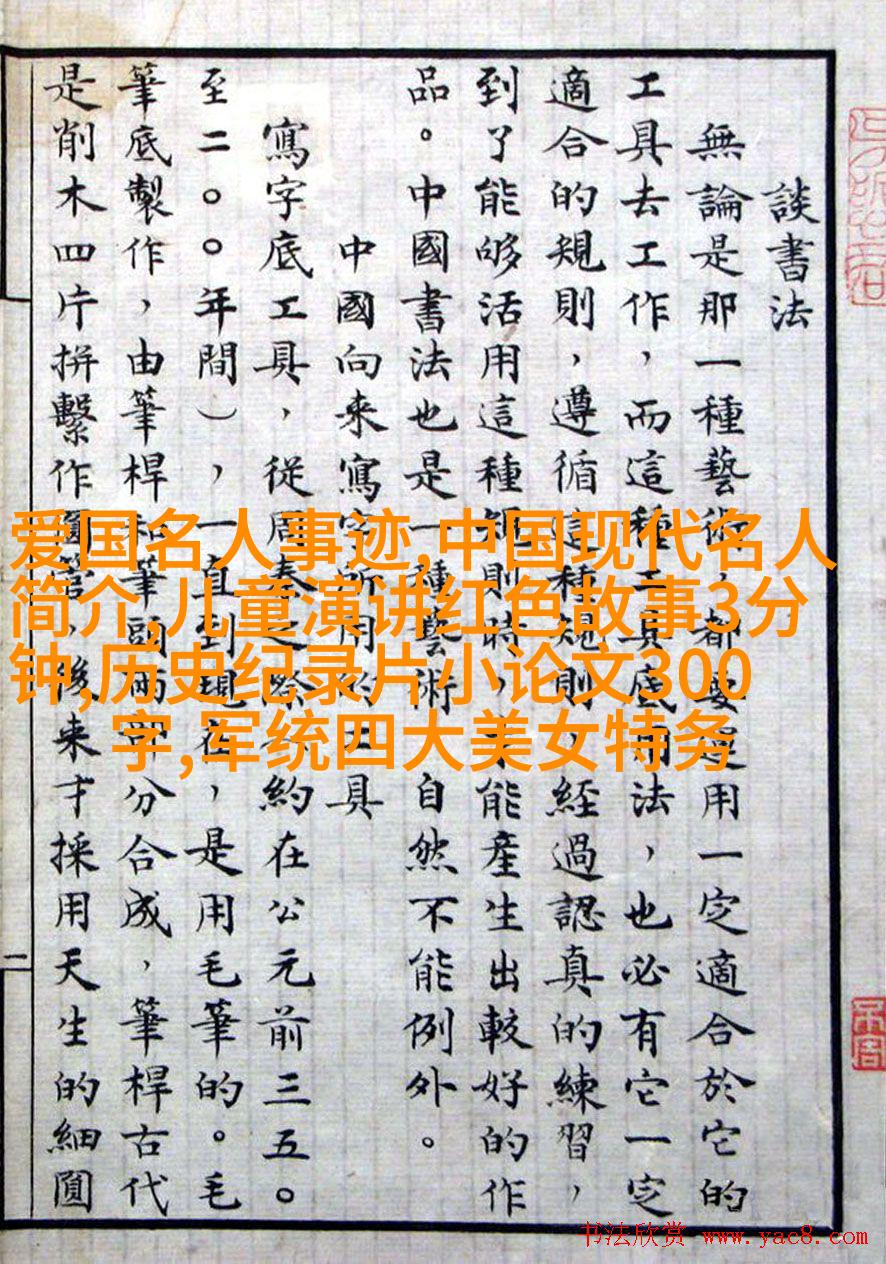 談書法
無論是那一種藝術，都要運用一定適合於它的
工具去工作，而這種工具底用法，也必有它一定
適合的規則，遵循這種規則，經過認真的練習，
到了能够活用這種規則時，才能產生出較好的作
品。中國書法也是一種藝術，自然不能例外。
中國向来寫字所用的工具
寫字底工具，從周秦之際（約在公元前三五〇
至二〇〇年間），一直到現在，是用毛筆的。毛
筆底製作，由筆桿和筆頭兩部分合成，筆桿古代
是削木四片拼繫作圓管，後来才採用天生的細圓
二
爱国名人事迹,中国现代名人
简介,儿童演讲红色故事3分
钟,历史纪录片小论文300
字,军统四大美女特务
书法欣赏 www.yac8.com